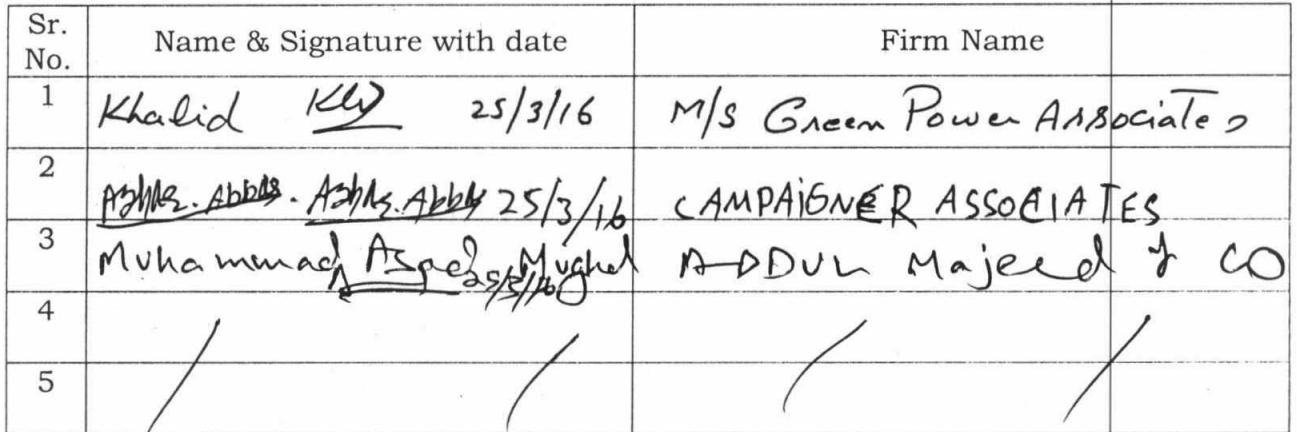 Sr. No. Name & Signature with date Firm Name
1 Khalid 25/3/16 M/S Green Power Associates
2 Azhar. Abbas. Azhar. Abbas 25/3/16 CAMPAIGNER ASSOCIATES
3 Muhammad Asad Mughal 25/3/16 ABDUL Majeed & CO
4
5